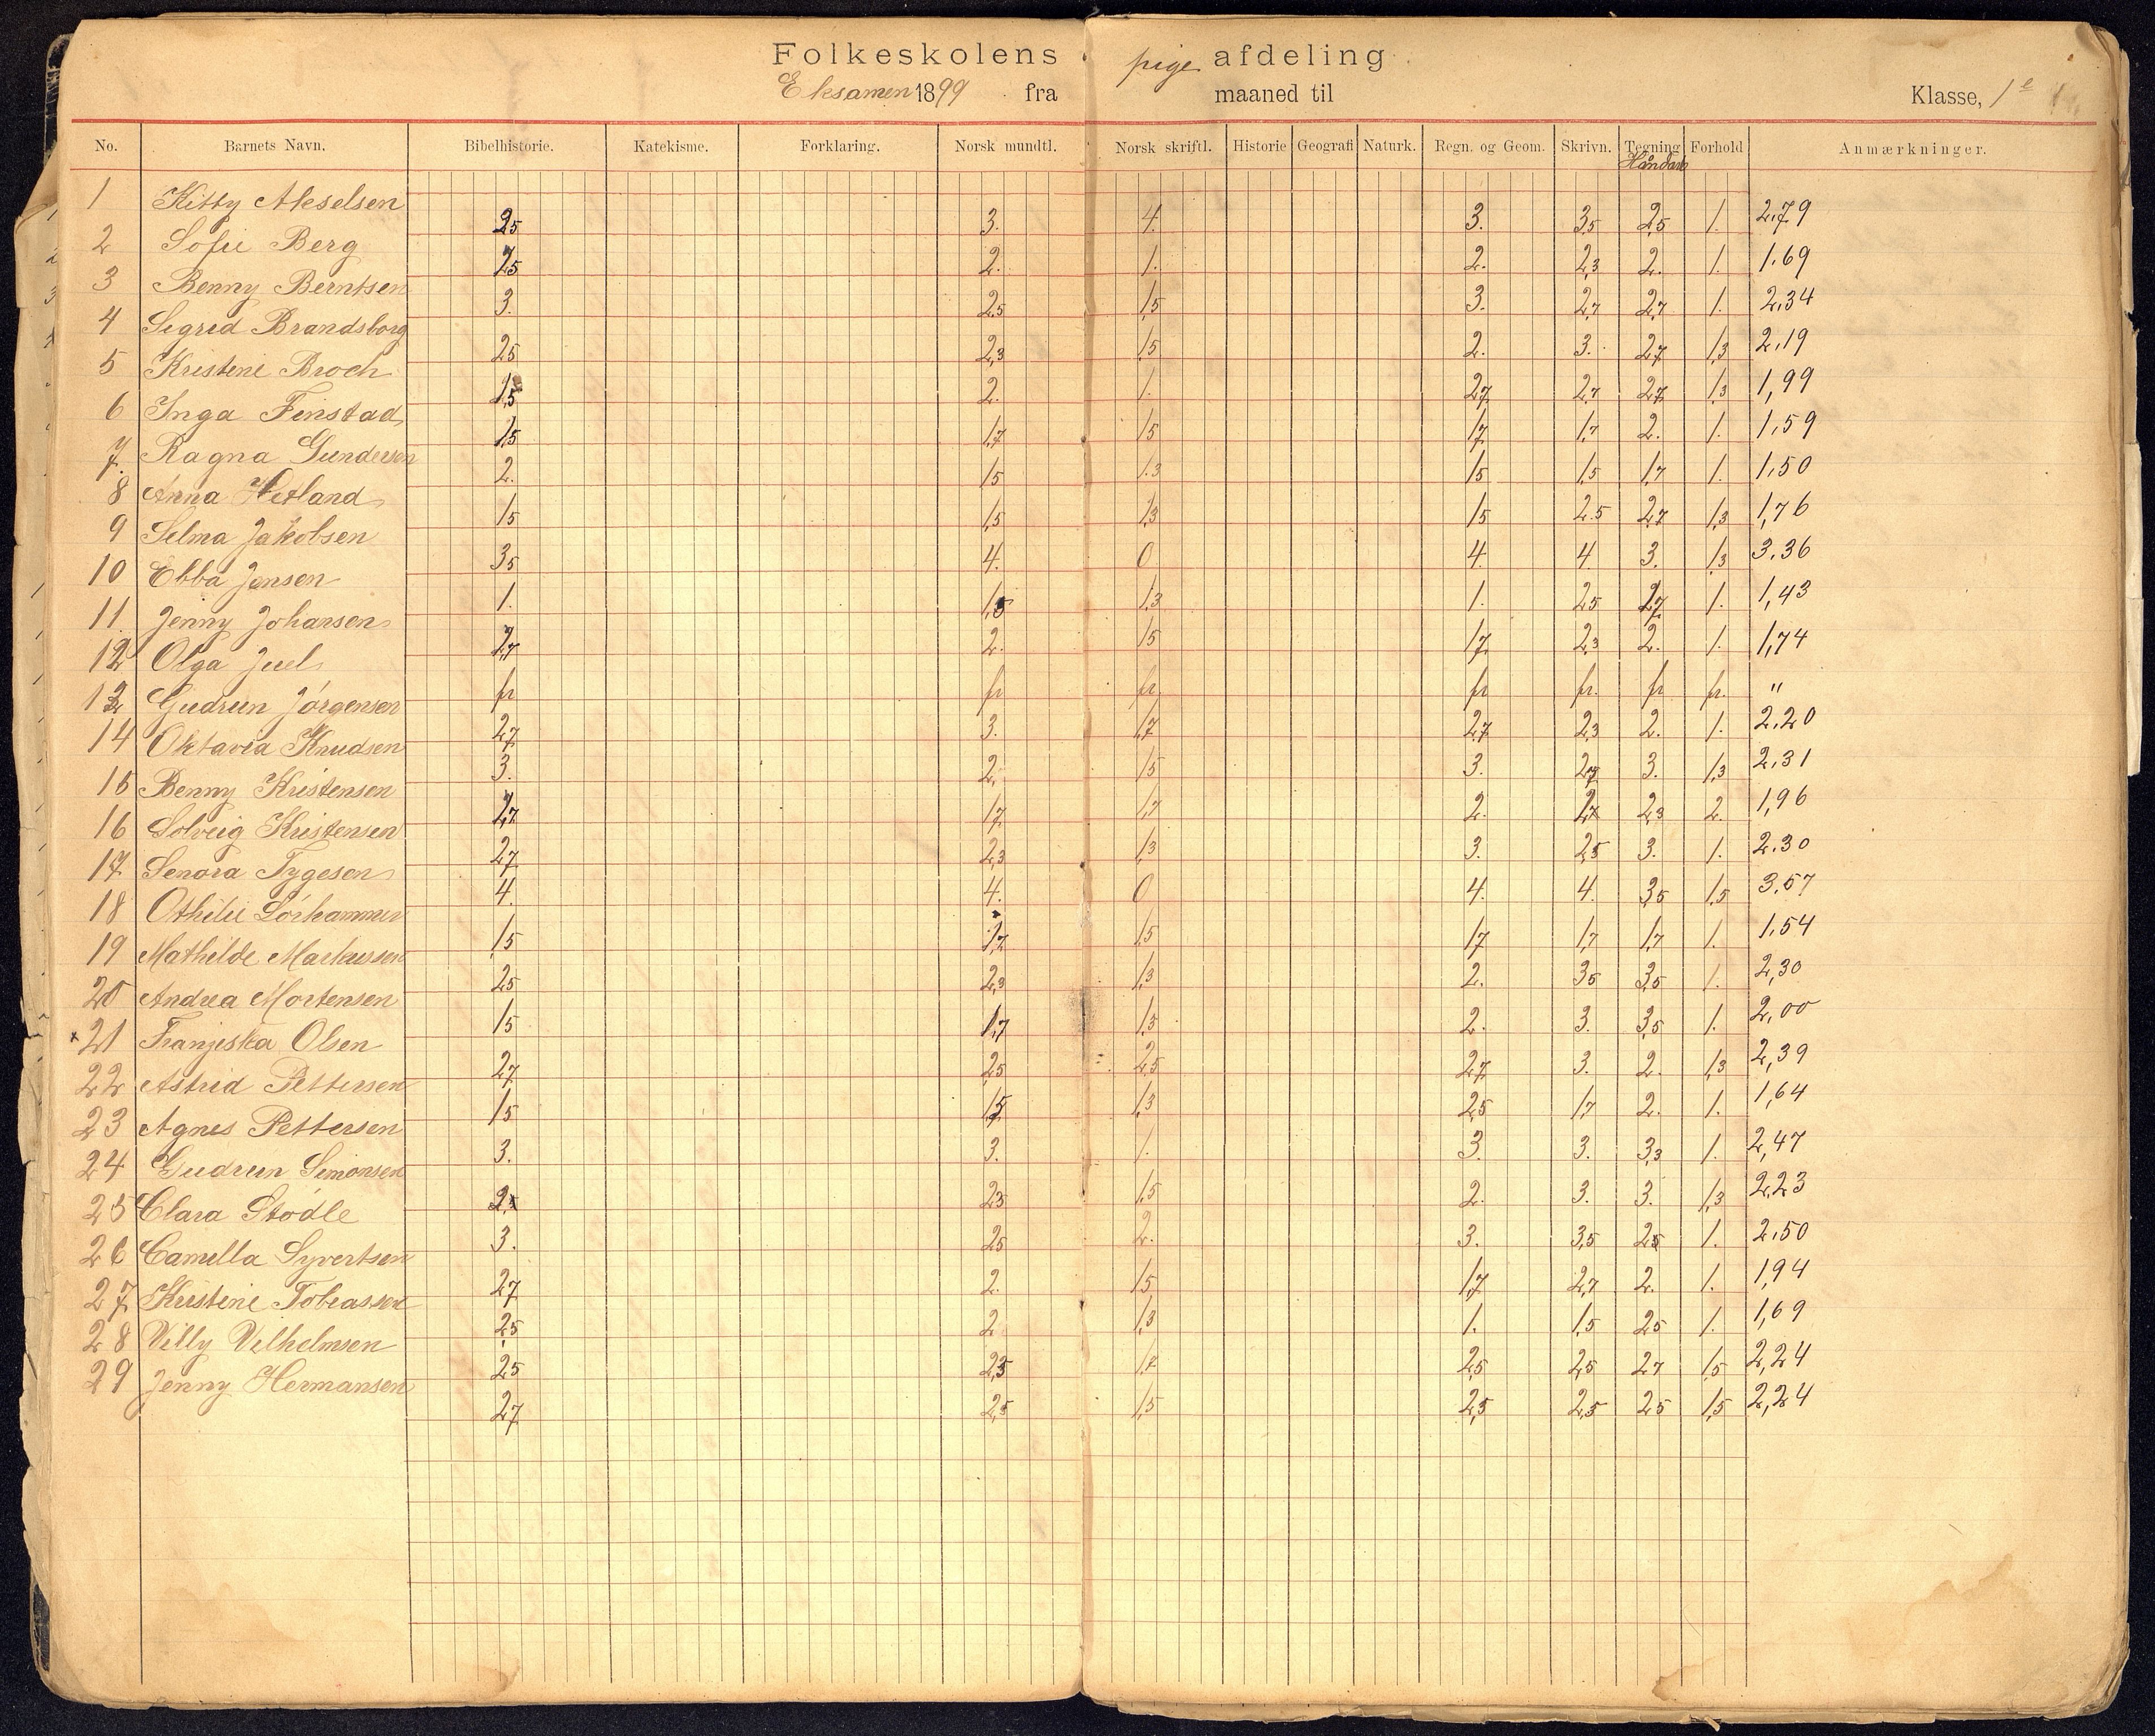 Folkeskolens pige afdeling
Eksamen 1899 fra maaned til Klasse, 1e
No. Barnets Navn. Bibelhistorie. Katekisme. Forklaring. Norsk mundtl. Norsk skriftl. Historie Geografi Naturk. Regn. og Geom. Skrivn. Tegning Forhold Anmærkninger.
Håndarb
1 Kitty Akselsen 2,5 3. 4. 3. 3,5 2,5 1. 2,79
2 Sofie Berg 1,5 2. 1. 2. 2,3 2. 1. 1,69
3 Benny Berntsen 3. 2,5 1,5 3. 2,7 2,7 1. 2,34
4 Sigrid Brandsborg 2,5 2,3 1,5 2. 3. 2,7 1,3 2,19
5 Kristine Broch 1,5 2. 1. 2,7 2,7 2,7 1,3 1,99
6 Inga Finstad 1,5 1,7 1,5 1,7 1,7 2. 1. 1,59
7. Ragna Gundersen 2. 1,5 1.3 1,5 1,5 1,7 1. 1,50
8 Anna Hetland 1,5 1,5 1,3 1,5 2.5 2,7 1,3 1,76
9 Selma Jakobsen 3,5 4. 0 4. 4. 3. 1,3 3.36
10 Ebba Jensen 1. 1,5 1,3 1. 2,5 1,7 1. 1,43
11 Jenny Johansen 1,7 2. 1,5 1,7 2,3 2. 1. 1,74
12 Olga Juel fr fr fr. fr fr. fr fr. "
13 Gudrun Jórgensen 2,7 3. 1,7 2,7 2,3 2. 1. 2,20
14 Oktavia Knudsen 3. 2. 1,5 3. 2,7 3. 1,3 2,31
15 Benny Kristensen 2,7 1,7 1,7 2. 1,7 2,3 2. 1,96
16 Solveig Kristensen 2,7 2,3 1,3 3. 2,5 3. 1. 2.30
17 Senora Tygesen 4. 4. 0 4. 4. 3,5 1,5 3.57
18 Othilie Sórhammer 1,5 1,7 1,5 1,7 1,7 1,7 1. 1.54
19 Mathilde Markussen 2,5 2,3 1,3 2. 3,5 3,5 1. 2,30
20 Andrea Mortensen 1,5 1,7 1,3 2. 3. 3,5 1. 2,00
x 21 Franjeska Olsen 2,7 2,5 2,5 2,7 3. 2. 1,3 2,39
22 Astrid Pettersen 1,5 1,5 1,3 2,5 1,7 2. 1. 1,64
23 Agnes Pettersen 3. 3. 1. 3. 3. 3,3 1. 2,47
24 Gudrun Simonsen 2,3 1,5 2. 3. 3. 1,3 2,23
25 Clara Stódle 3. 2,5 2. 3. 3,5 2,5 1. 2,50
26 Camilla Syvertsen 2,7 2. 1,5 1,7 2,7 2. 1. 1,94
27 Kristine Tobiassen 2,5 2 1,3 1. 1,5 2,5 1. 1,69
28 Villy Vilhelmsen 2,5 2,5 1,7 2,5 2,5 2,7 1,5 2,24
29 Jenny Hermansen 2,7 2,5 1,5 2,5 2,5 2,5 1,5 2,24